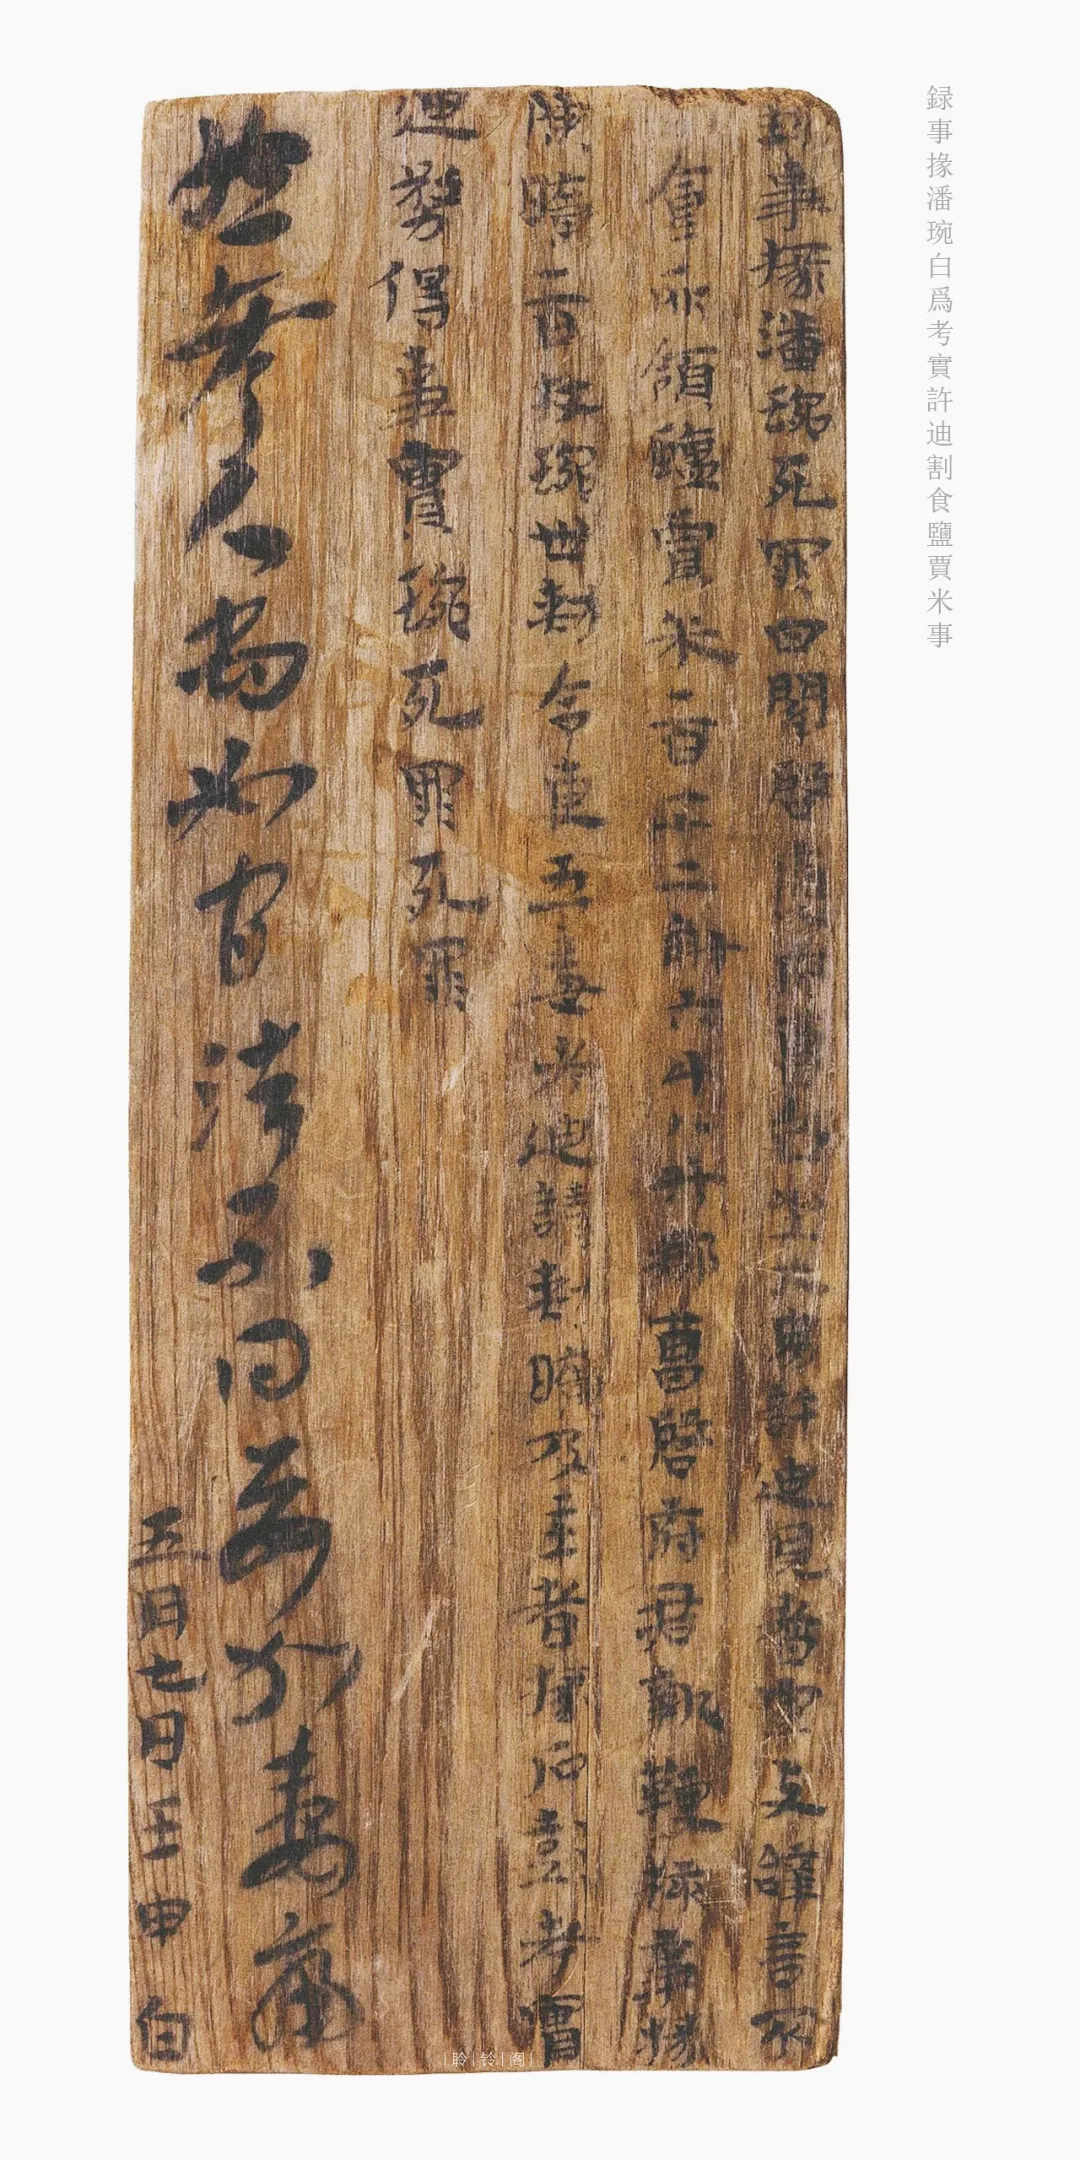 録事掾潘琬白爲考實許迪割食鹽賈米事
録事掾潘琬死罪白關啓坐大男許迪見督軍支辭言不
食所領鹽賈米一百一十二斛六斗八升郡曹啓府君執鞭核事掾
陳曠一百杖琬卌勑令更五毒考迪請勑曠及主者掾石彭考實
迪務得事實琬死罪死罪
然考人當如官法不得妄加毒痛
五月七日壬申白
聆铃阁